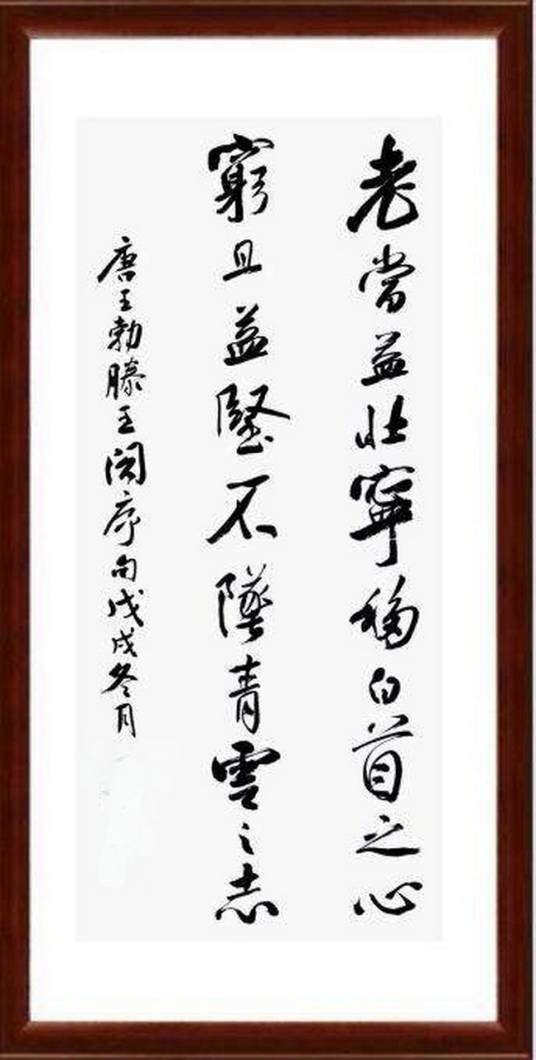 老當益壯寧移白首之心
窮且益堅不墜青雲之志
唐王勃滕王阁序句戊戌冬月